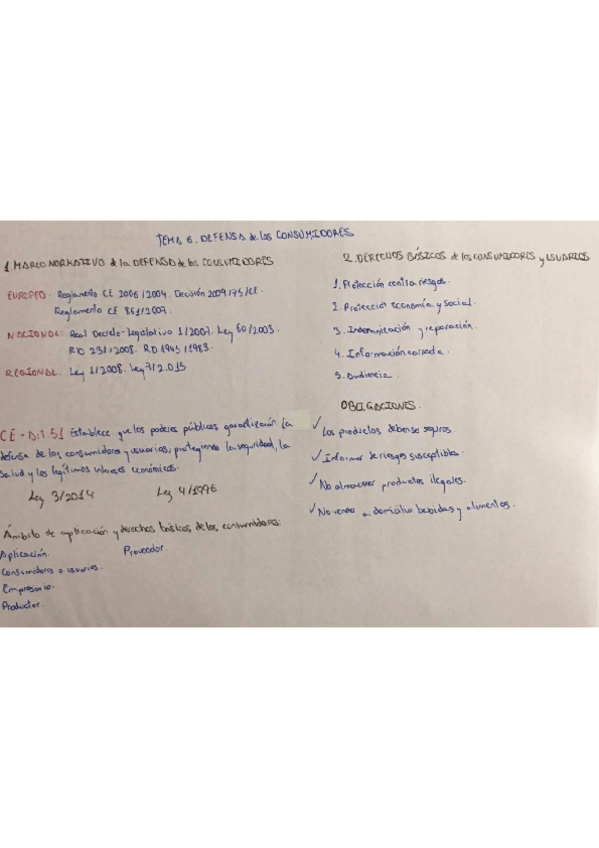 TEMA 6. DEFENSA de los CONSUMIDORES
1. MARCO NORMATIVO de la DEFENSA de los CONSUMIDORES
EUROPEO: Reglamento CE 2006/2004. Decisión 2009/75/CE.
Reglamento CE 861/2007.
NACIONAL: Real Decreto-Legislativo 1/2007. Ley 60/2003.
RD 231/2008. RD 1945/1983.
REGIONAL: Ley 1/2008. Ley 7/2.015
CE - Art. 51 Establece que los poderes públicos garantización la
defensa de los consumidores y usuarios; protegiendo la seguridad, la
salud y los legítimos intereses económicos.
Ley 3/2014 Ley 4/1996
Ámbito de aplicación y derechos básicos de los consumidores:
Aplicación. Proveedor.
Consumidores o usuarios.
Empresario.
Productor.
2. DERECHOS BÁSICOS de los CONSUMIDORES y USUARIOS
1. Protección contra riesgos.
2. Protección economía y social.
3. Indemnización y reparación.
4. Información correcta.
5. Audiencia.
OBLIGACIONES.
✓ Los productos deben ser seguros
✓ Informar de riesgos susceptibles.
✓ No almacenar productos ilegales.
✓ No venta a domicilio bebidas y alimentos.